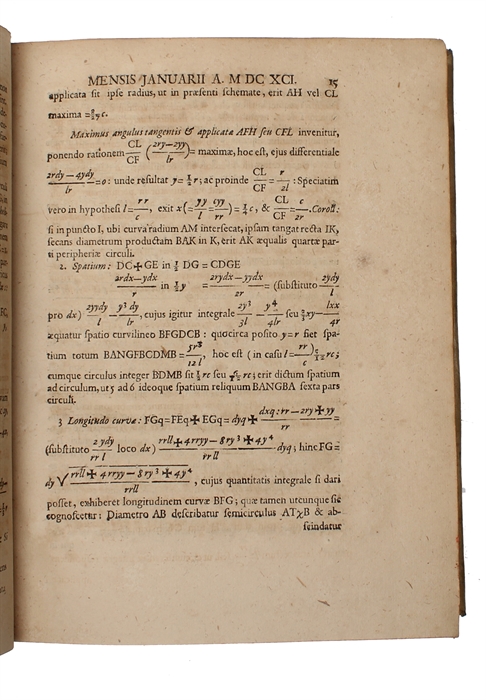 MENSIS JANUARII A. M DC XCI. 15
applicata sit ipse radius, ut in præsenti schemate, erit AH vel CL
maxima =
Maximus angulus tangentis & applicatæ AFH seu CFL invenitur,
ponendo rationem CL/CF (2ry−2yy/lr) = maximæ, hoc est, ejus differentiale
2rdy−4ydy/lr =0: unde resultat y=½r; ac proinde CL/CF = r/2l: Speciatim
vero in hypothesi l=rr/c, exit x(=yy/l=cyy/rr)=¼c, & CL/CF=c/2r. Coroll:
si in puncto I, ubi curva radium AM intersecat, ipsam tangat recta IK,
secans diametrum productam BAK in K, erit AK æqualis quartæ par-
ti peripheriæ circuli.
2. Spatium: DC✠GE in ½ DG = CDGE
2rdx−ydx/r in ½y = 2rydx−yydx/2r = (substituto 2ydy/l
pro dx) 2yydy/l − y³dy/lr, cujus igitur integrale 2y³/3l − y⁴/4lr seu ⅔xy − lxx/4r
æquatur spatio curvilineo BFGDCB: quocirca posito y=r fiet spa-
tium totum BANGFBCDMB = 5r³/12l, hoc est (in casu l=rr/c) 5/12 rc;
cumque circulus integer BDMB sit ½rc seu rc; erit dictum spatium
ad circulum, ut 5 ad 6 ideoque spatium reliquum BANGBA sexta pars
circuli.
3 Longitudo curvæ: FGq=FEq✠EGq=dyq✠ dxq: rr−2ry✠yy/rr =
(substituto 2ydy/l loco dx) rrll✠4rryy−8ry³✠4y⁴/rrll dyq; hinc FG=
dy√rrll✠4rryy−8ry³✠4y⁴/rrll, cujus quantitatis integrale si dari
posset, exhiberet longitudinem curvæ BFG; quæ tamen utcunque sic
cognoscetur: Diametro AB describatur semicirculus ATχB & ab-
scindatur